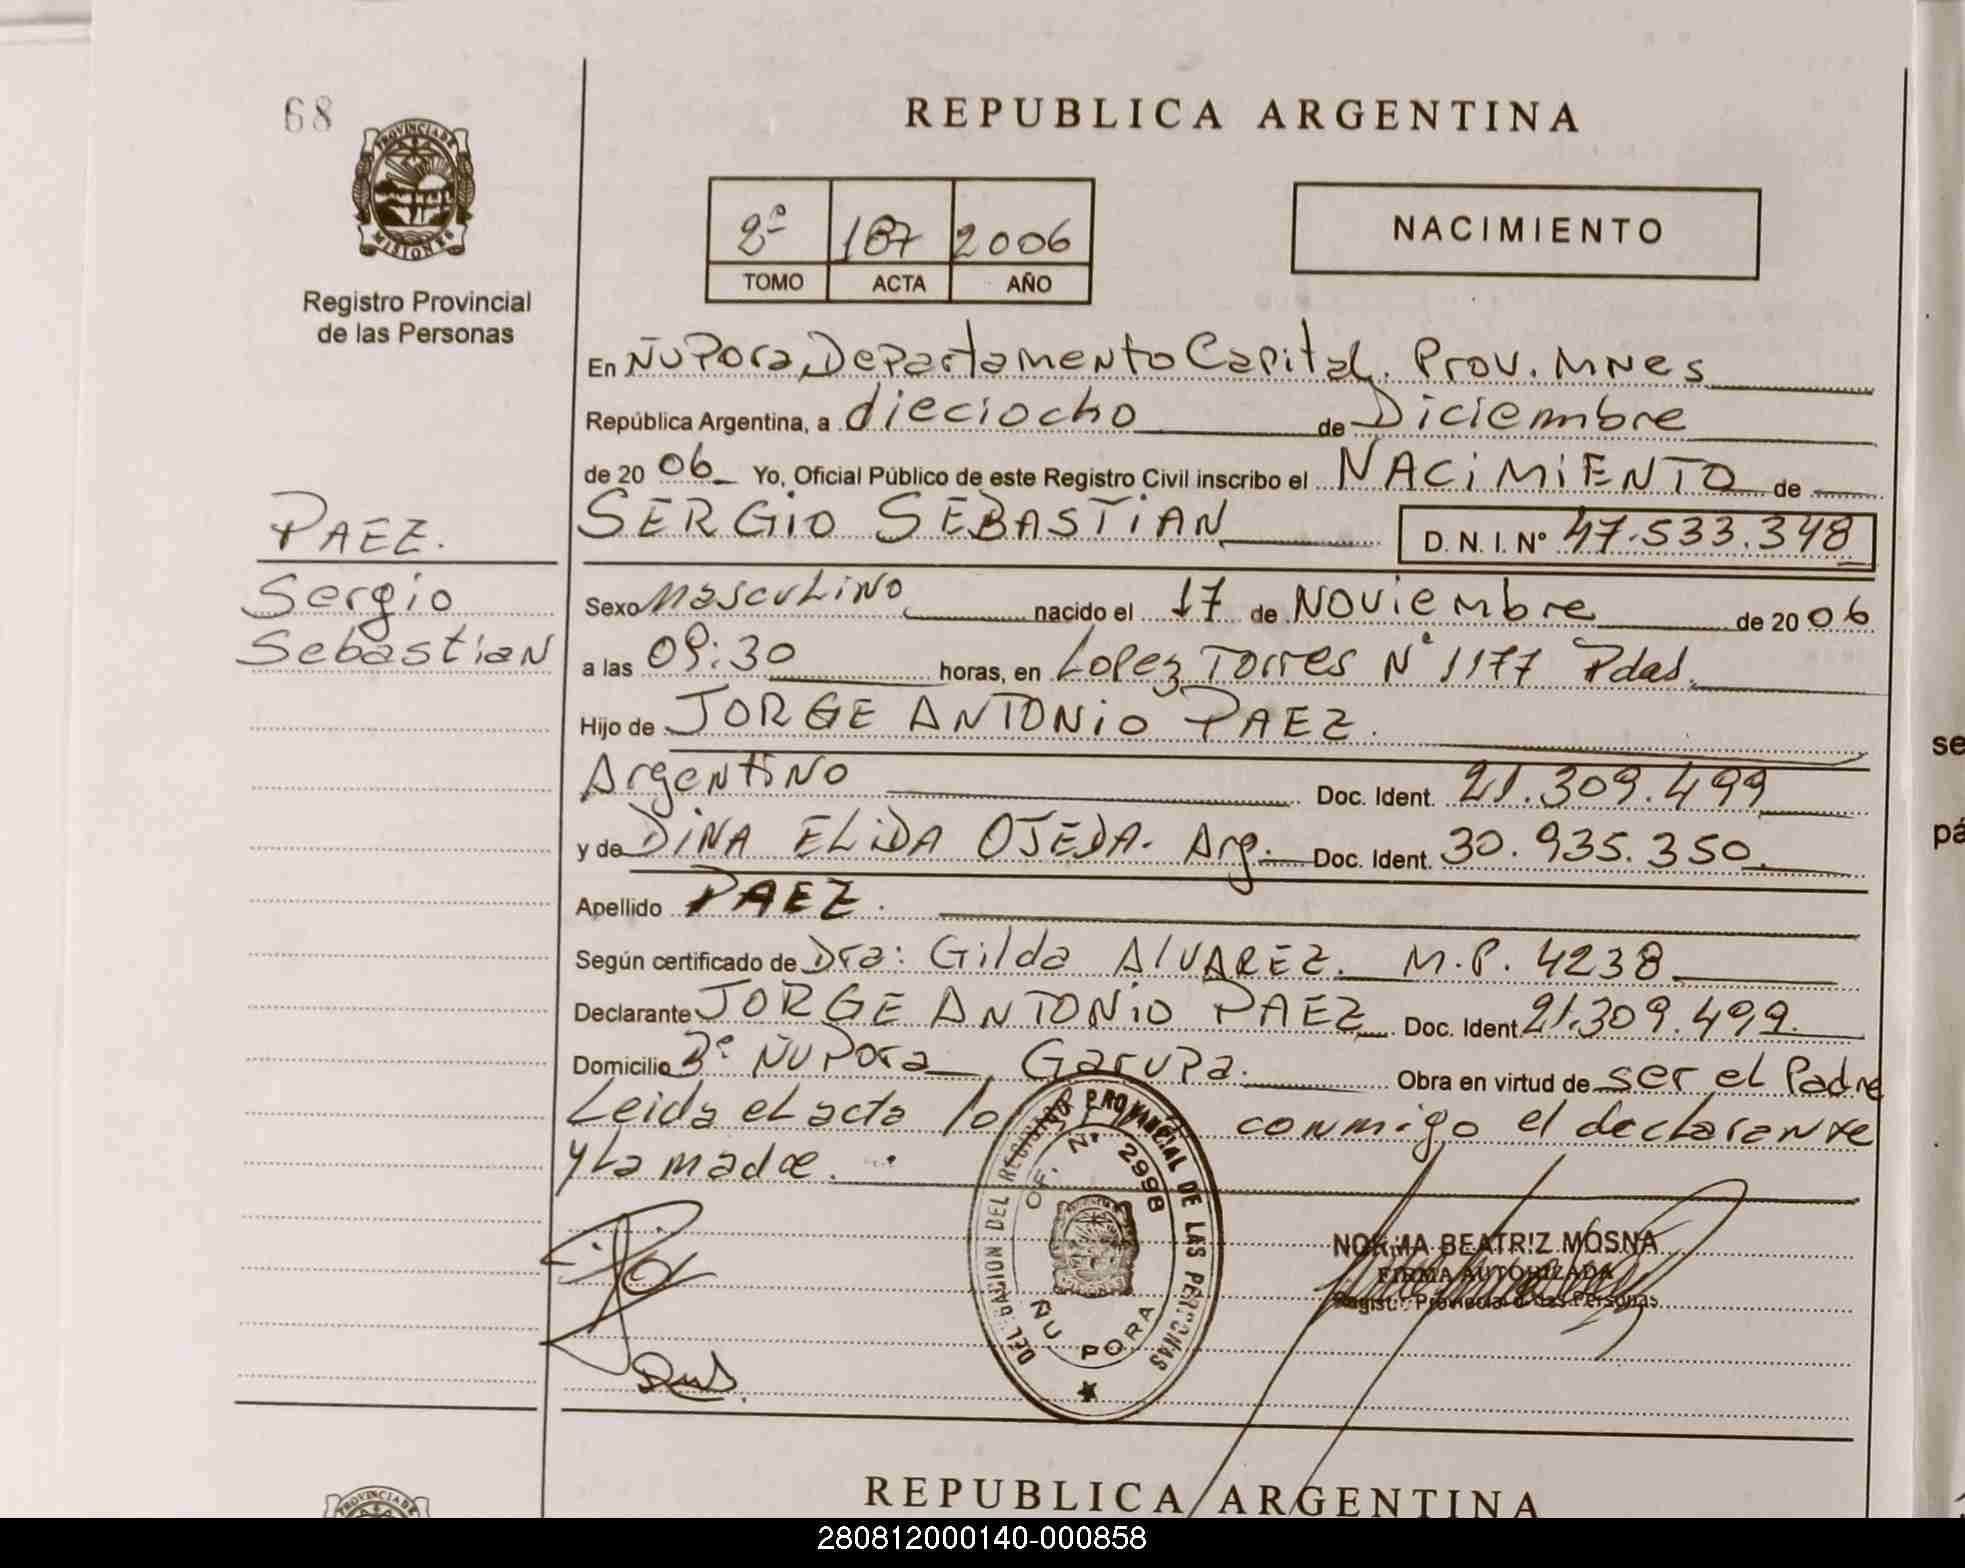 68
REPUBLICA ARGENTINA
PROVINCIA DE MISIONES
Registro Provincial
de las Personas
2º 187 2006
TOMO ACTA AÑO
NACIMIENTO
En ÑuPora, Departamento Capital. Prov. MNes
República Argentina, a dieciocho de Diciembre
de 20 06 Yo, Oficial Público de este Registro Civil inscribo el NACIMIENTO de
SERGIO SEBASTIAN D. N. I. Nº 47.533.348
PAEZ.
Sergio
Sebastian
Sexo Masculino nacido el 17 de Noviembre de 20 06
a las 09:30 horas, en Lopez Torres Nº 1177 Pdas.
Hijo de JORGE ANTONIO PAEZ.
Argentino Doc. Ident. 21.309.499
y de DINA ELIDA OJEDA. Arg. Doc. Ident. 30.935.350.
Apellido PAEZ.
Según certificado de Dra: Gilda ALVAREZ. M.P. 4238
Declarante JORGE ANTONIO PAEZ Doc. Ident 21.309.499.
Domicilio Bº ÑuPora Garupa. Obra en virtud de ser el Padre
Leida el acta lo conmigo el declarante
y la madre.
DELEGACION DEL REGISTRO PROVINCIAL DE LAS PERSONAS
OF. Nº 2998
ÑU PORA
NORMA BEATRIZ MOSNA
FIRMA AUTORIZADA
Registro Provincial de las Personas
se
pá
REPUBLICA ARGENTINA
PROVINCIA DE
280812000140-000858